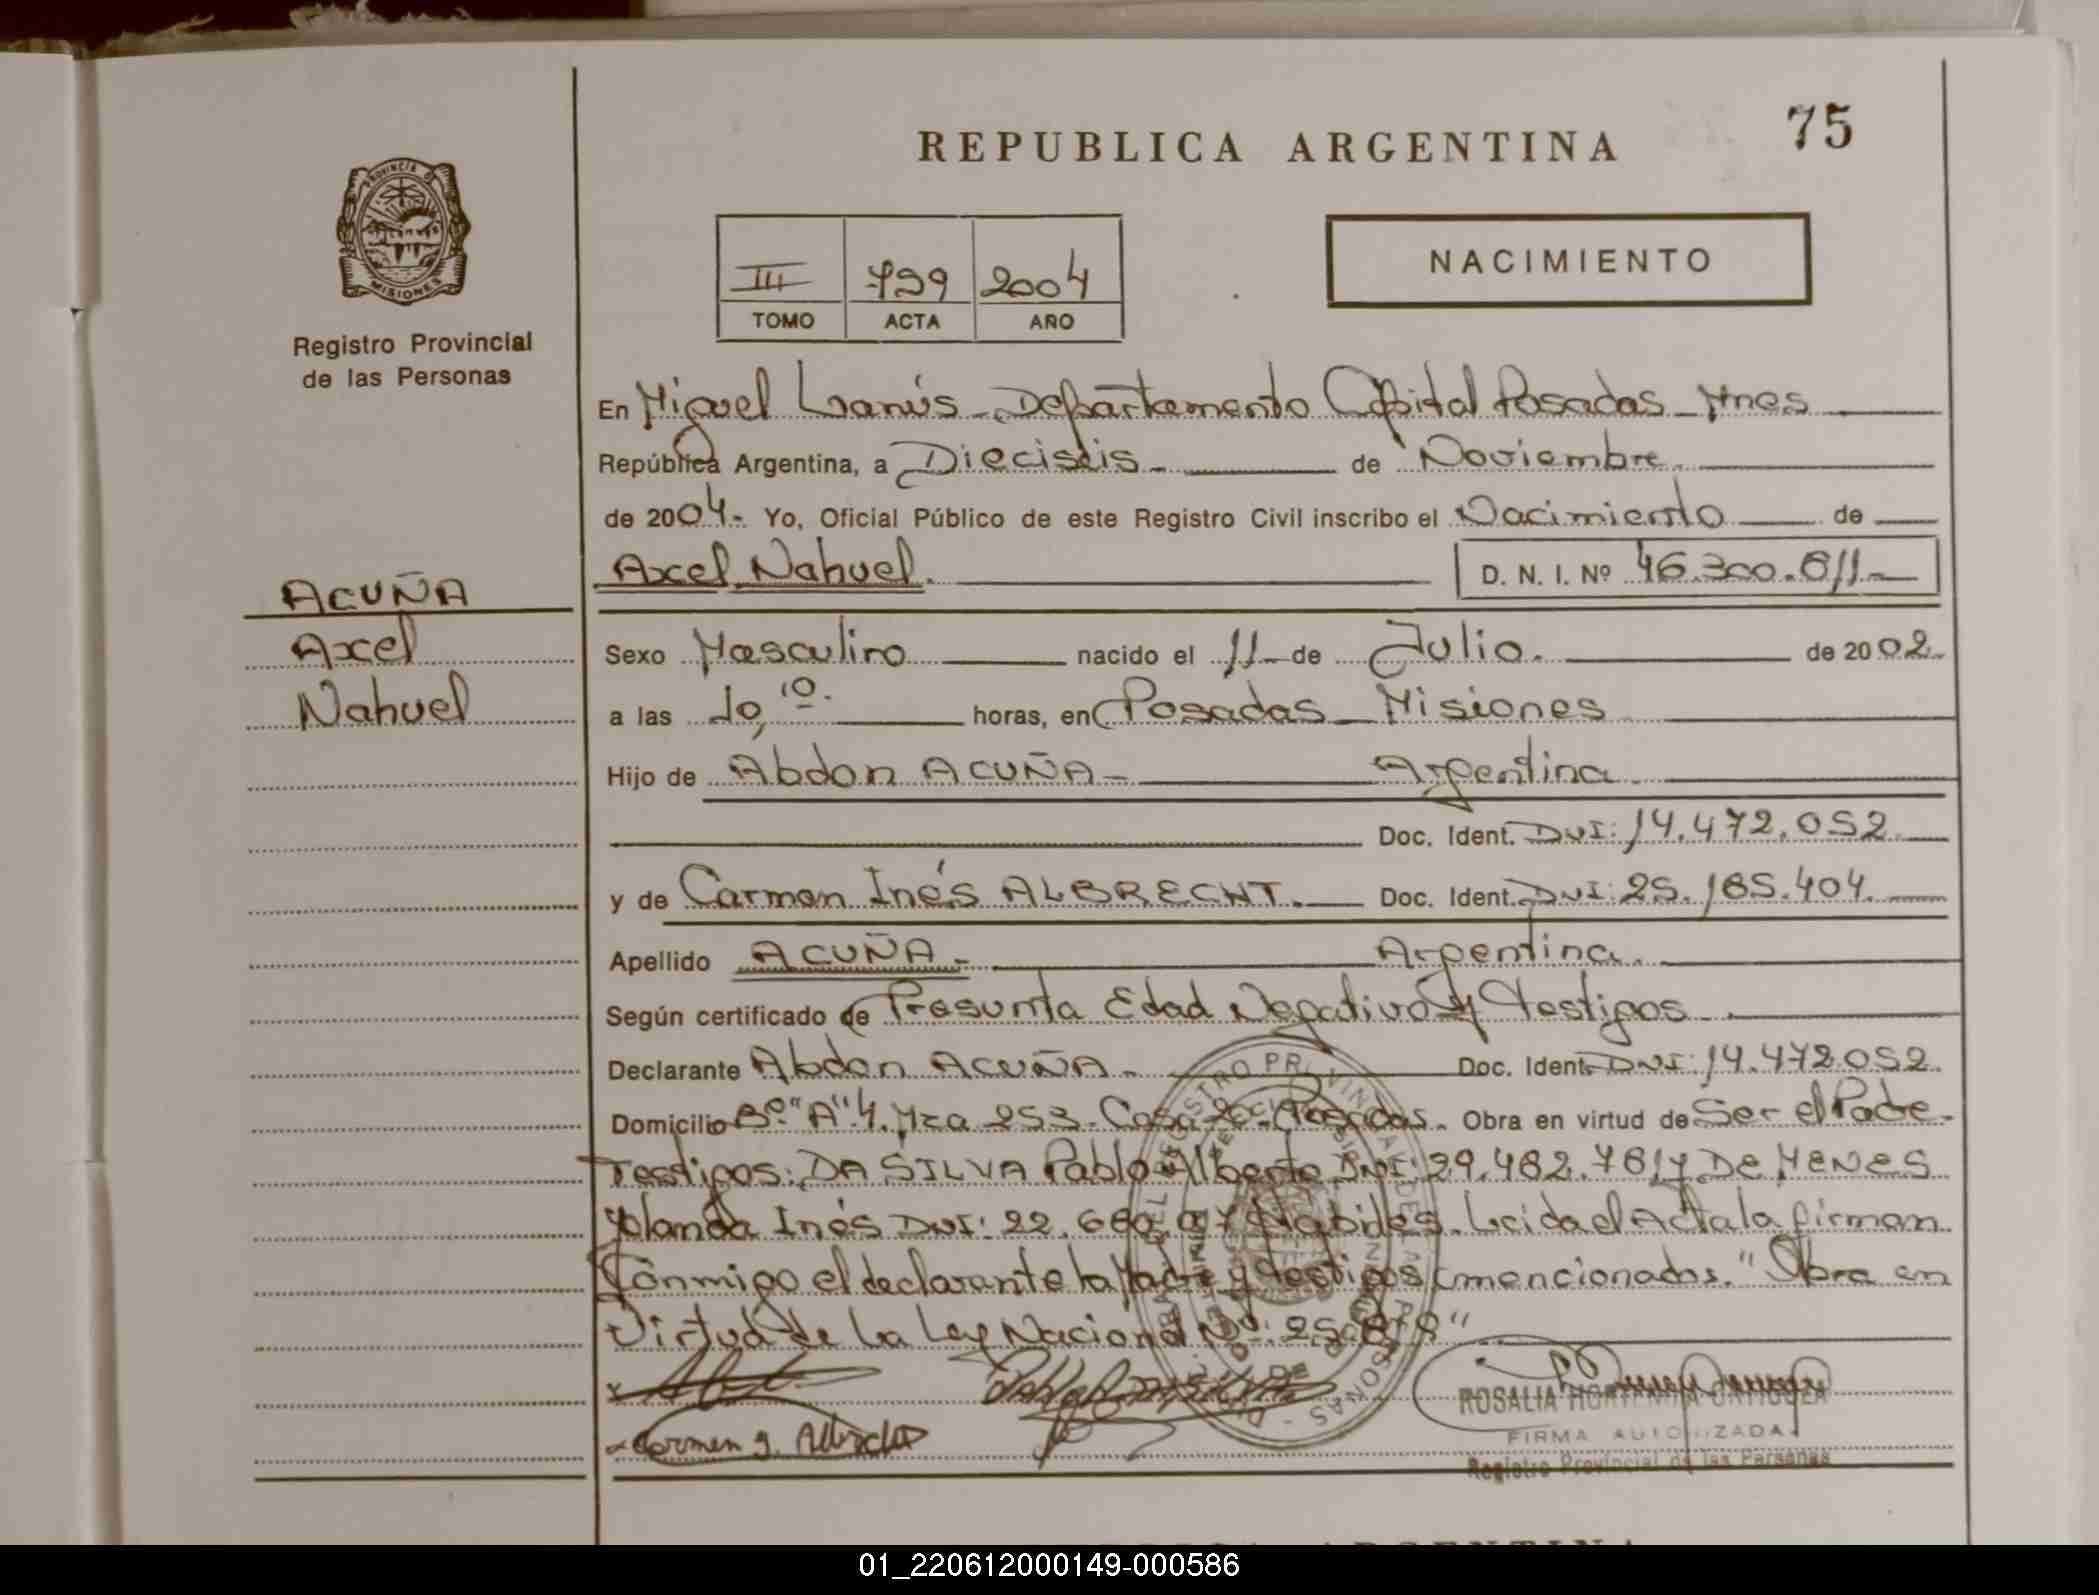 75
REPUBLICA ARGENTINA
PROVINCIA D
MISIONES
NACIMIENTO
III 729 2004
TOMO ACTA AÑO
Registro Provincial
de las Personas
En Miguel Lanús - Departamento Capital Posadas - Mnes
República Argentina, a Dieciséis - de Noviembre
de 2004.- Yo, Oficial Público de este Registro Civil inscribo el Nacimiento de
Axel Nahuel. D. N. I. Nº 46.300.611-
ACUÑA
Axel
Nahuel
Sexo Masculino nacido el 11 de Julio. de 2002.
a las 10,10. horas, en Posadas - Misiones
Hijo de Abdon ACUÑA - Argentina
Doc. Ident. DNI: 14.472.052
y de Carmen Inés ALBRECHT. Doc. Ident. DNI: 25.185.404.
Apellido ACUÑA - Argentina.
Según certificado de Presunta Edad Negativo y testigos
Declarante Abdon ACUÑA - Doc. Ident. DNI: 14.472.052.
Domicilio Bº "A" 4. Mza 253. Casa 20 - Posadas. Obra en virtud de Ser el Padre
Testigos: DA SILVA Pablo Alberto DNI: 29.482.781 y DE MENES
Yolanda Inés DNI: 22. hábiles. Leida el Acta la firman
Conmigo el declarante la Madre y testigos mencionados. "Obra en
Virtud de la Ley Nacional Nº:
Carmen I. Albrecht
ROSALIA HORTENSIA
FIRMA AUTORIZADA
Registro Provincial de las Personas
01_220612000149-000586